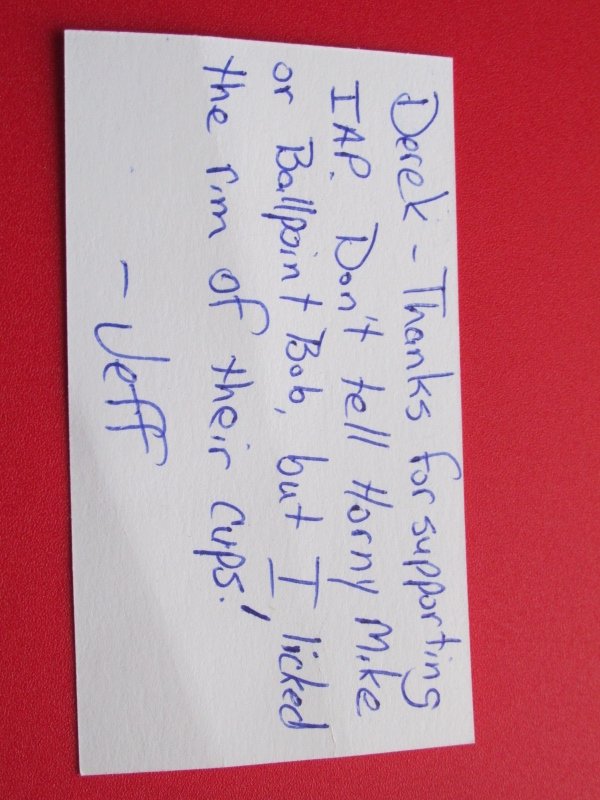 Derek - Thanks for supporting
IAP. Don't tell Horny Mike
or Ballpoint Bob, but I licked
the rim of their cups!
- Jeff